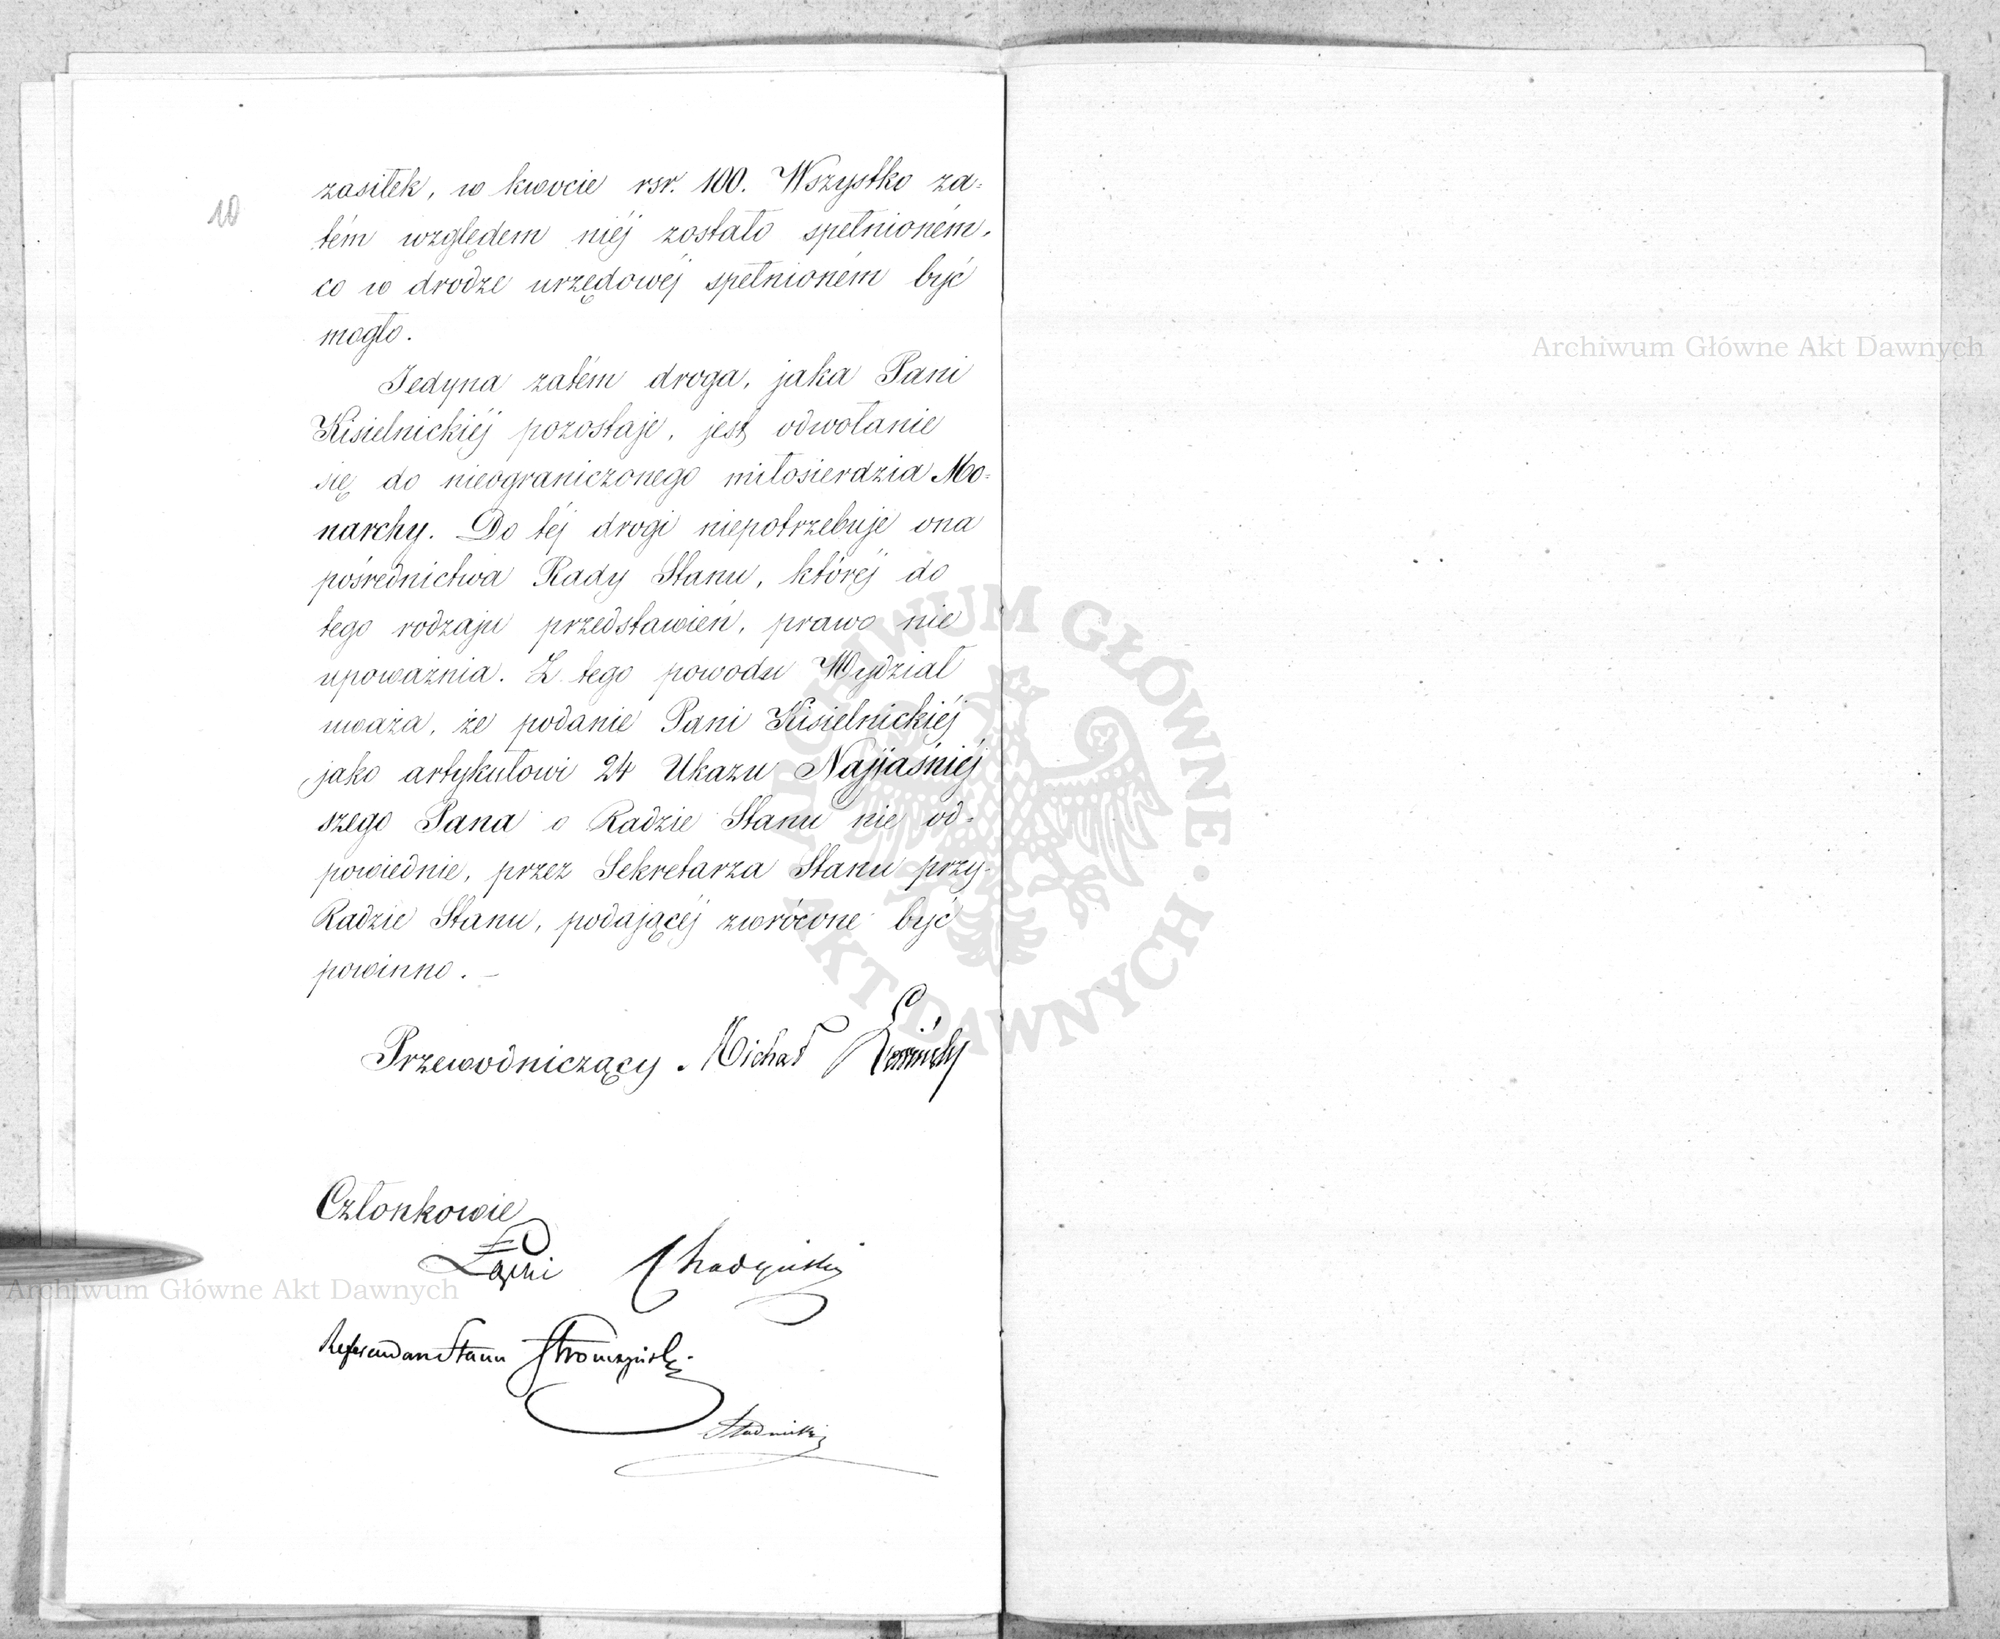 10
zasiłek, w kwocie rsr. 100. Wszystko za-
tém względem niéj zostało spełnioném,
co w drodze urzędowéj spełnioném być
mogło.
Jedyna zatém droga, jaka Pani
Kisielnickiéj pozostaje, jest odwołanie
się do nieograniczonego miłosierdzia Mo-
narchy. Do téj drogi niepotrzebuje ona
pośrednictwa Rady Stanu, któréj do
tego rodzaju przedstawień, prawo nie
upoważnia. Z tego powodu Wydział
uważa, że podanie Pani Kisielnickiéj
jako artykułowi 24 Ukazu Najjaśniéj
szego Pana o Radzie Stanu nie od-
powiednie, przez Sekretarza Stanu przy
Radzie Stanu, podającéj zwrócone być
powinno. –
Przewodniczący. Michał
Członkowie
Łąski Chądzyński
Referendarz Stanu Stronczyński
Stadnicki
Archiwum Główne Akt Dawnych
Archiwum Główne Akt Dawnych
ARCHIWUM GŁÓWNE AKT DAWNYCH